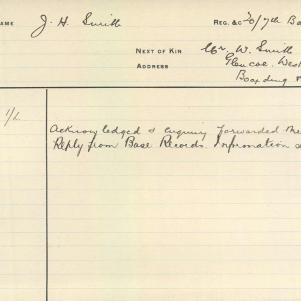 NAME J. H. Smith REG. &C 20/7th Ba
NEXT OF KIN Mr. W. Smith
ADDRESS Glencoe, West
Boxding
1/2
Acknowledged & enquiry forwarded Me
Reply from Base Records. Information s